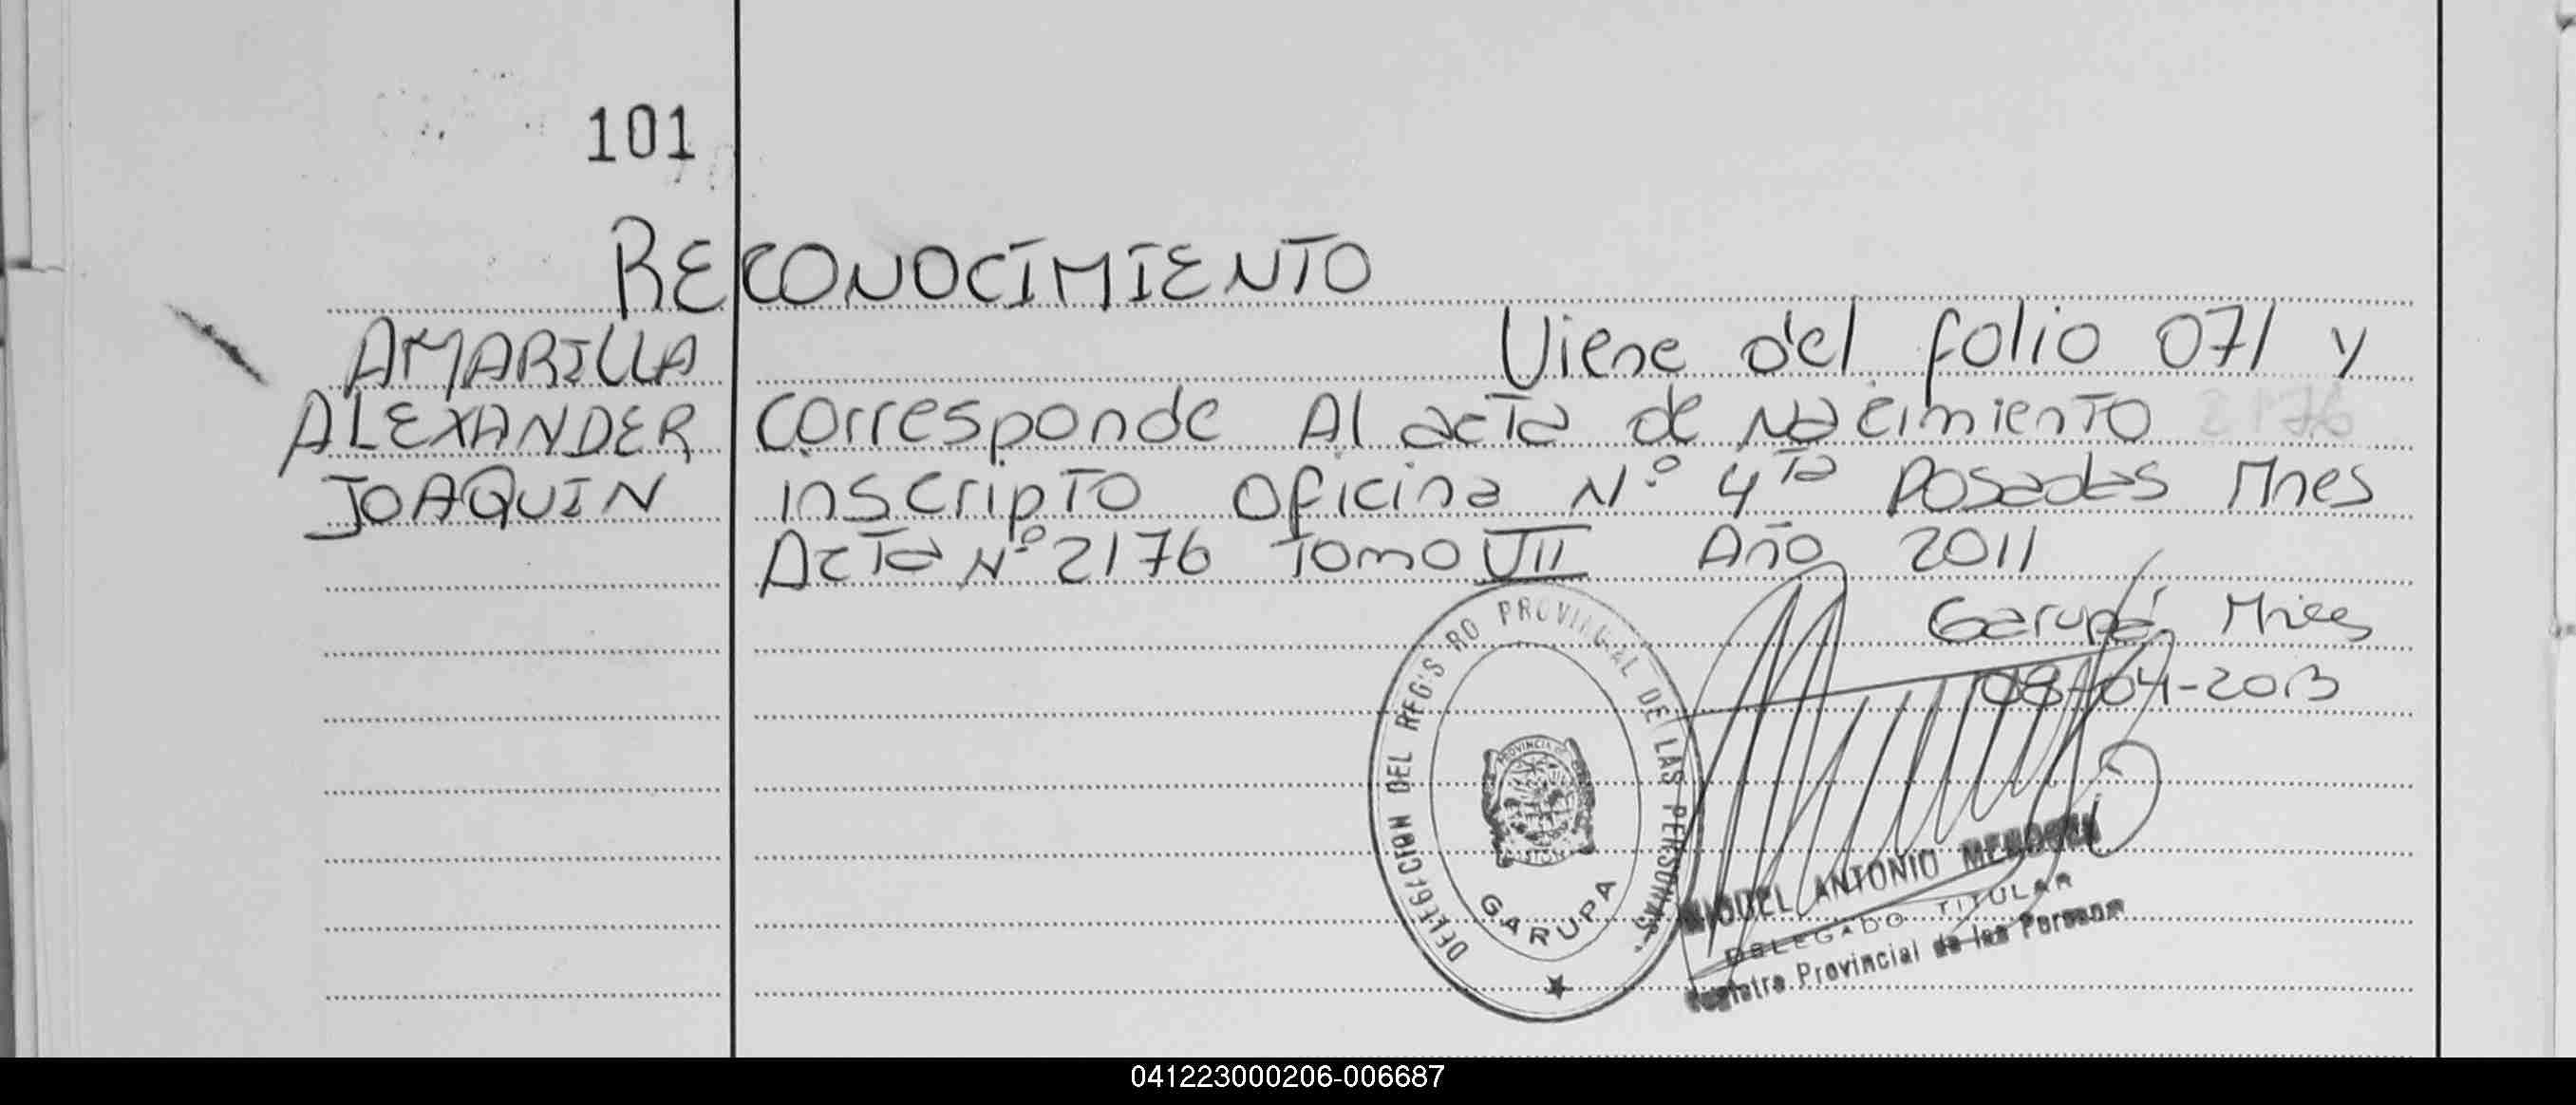 101
RECONOCIMIENTO
AMARILLA Viene del folio 071 y
ALEXANDER corresponde Al acta de Nacimiento 2176
JOAQUIN inscripto oficina N° 4ta Posadas Mnes
Acta N° 2176 tomo VII Año 2011
Garupá Mnes
08-04-2013
DELEGACION DEL REGISTRO PROVINCIAL DE LAS PERSONAS
PROVINCIA DE
GARUPA
MIGUEL ANTONIO MENDOZA
DELEGADO TITULAR
Registro Provincial de las Personas
041223000206-006687